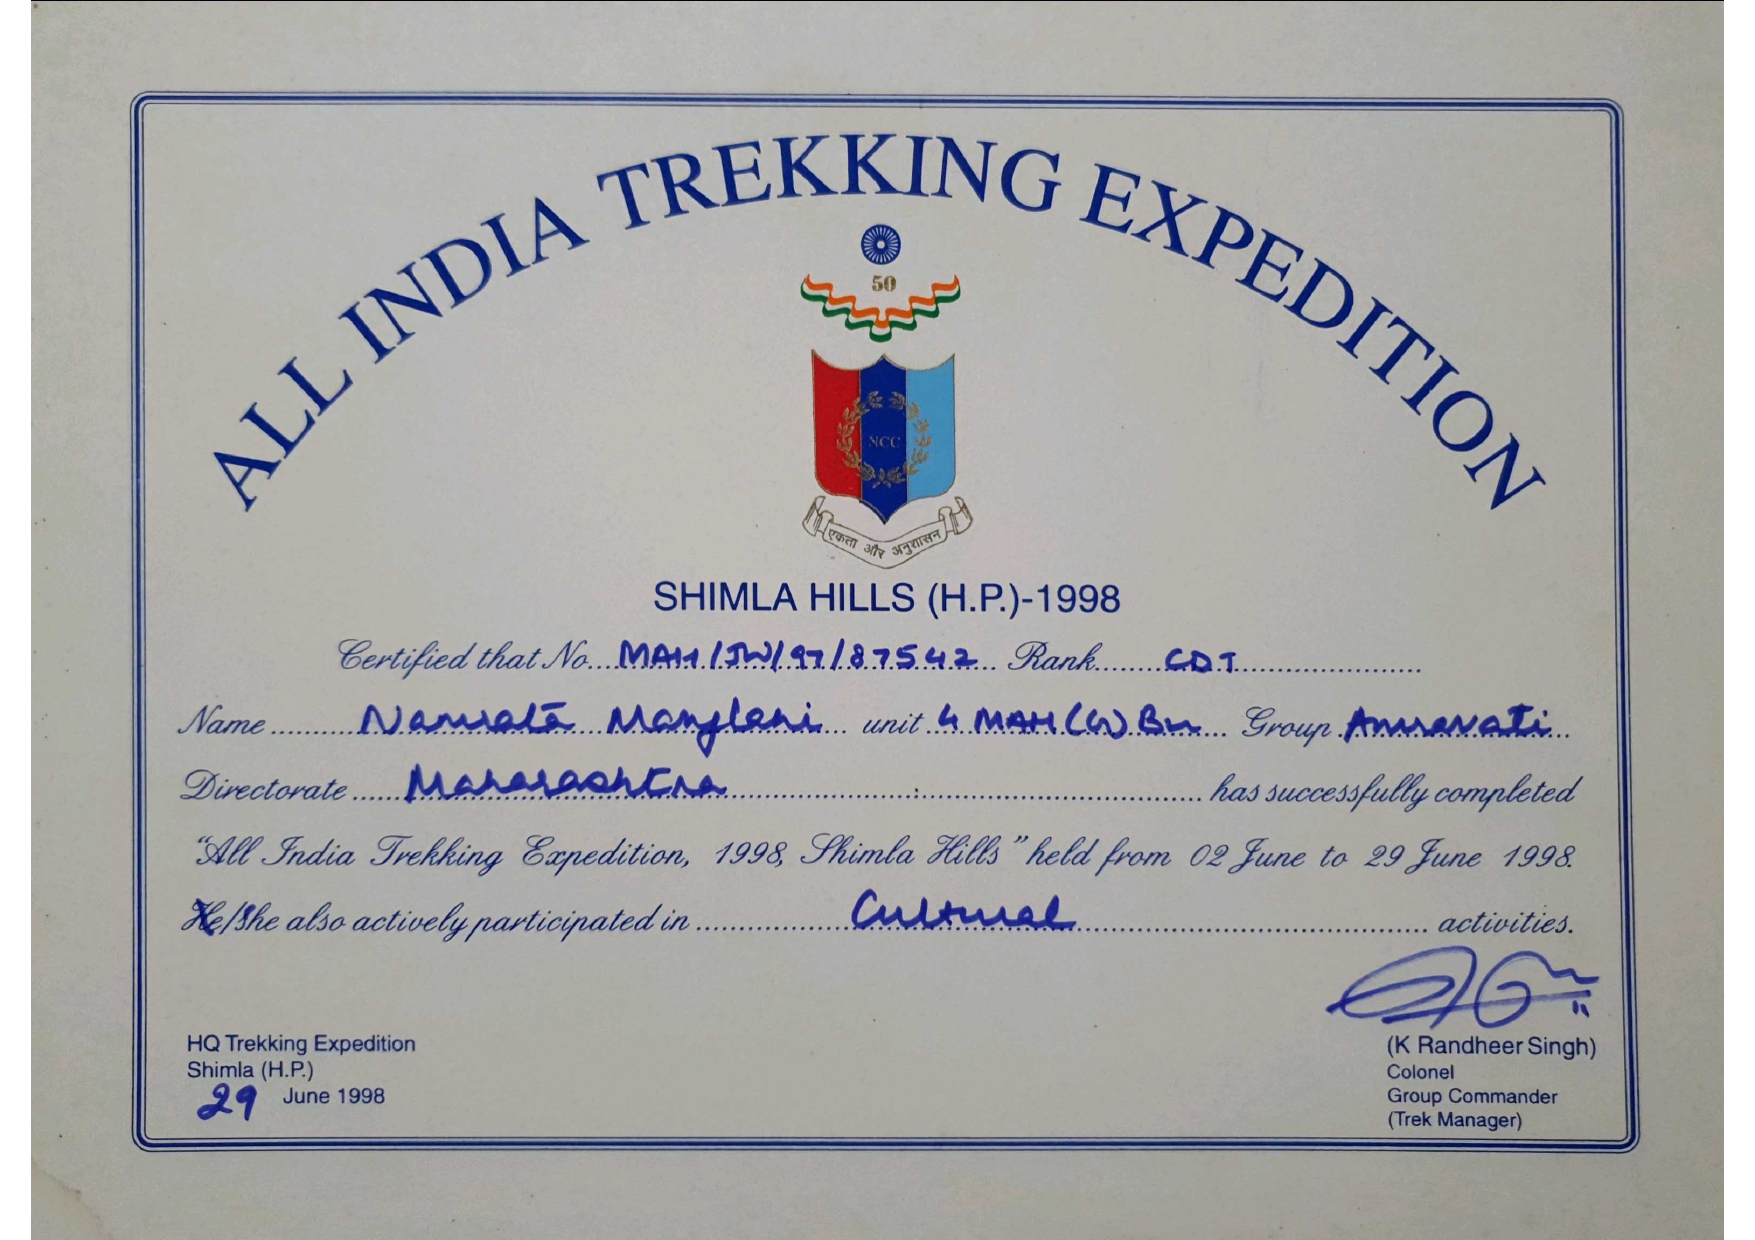 ALL INDIA TREKKING EXPEDITION
50
NCC
एकता और अनुशासन
SHIMLA HILLS (H.P.)-1998
Certified that No. MAH/JW/97/87542 Rank CDT
Name Namrata Manglani unit 4 MAH (G) Bn Group Amravati
Directorate Maharashtra has successfully completed
"All India Trekking Expedition, 1998, Shimla Hills" held from 02 June to 29 June 1998.
He/She also actively participated in Cultural activities.
HQ Trekking Expedition
Shimla (H.P.)
29 June 1998
(K Randheer Singh)
Colonel
Group Commander
(Trek Manager)